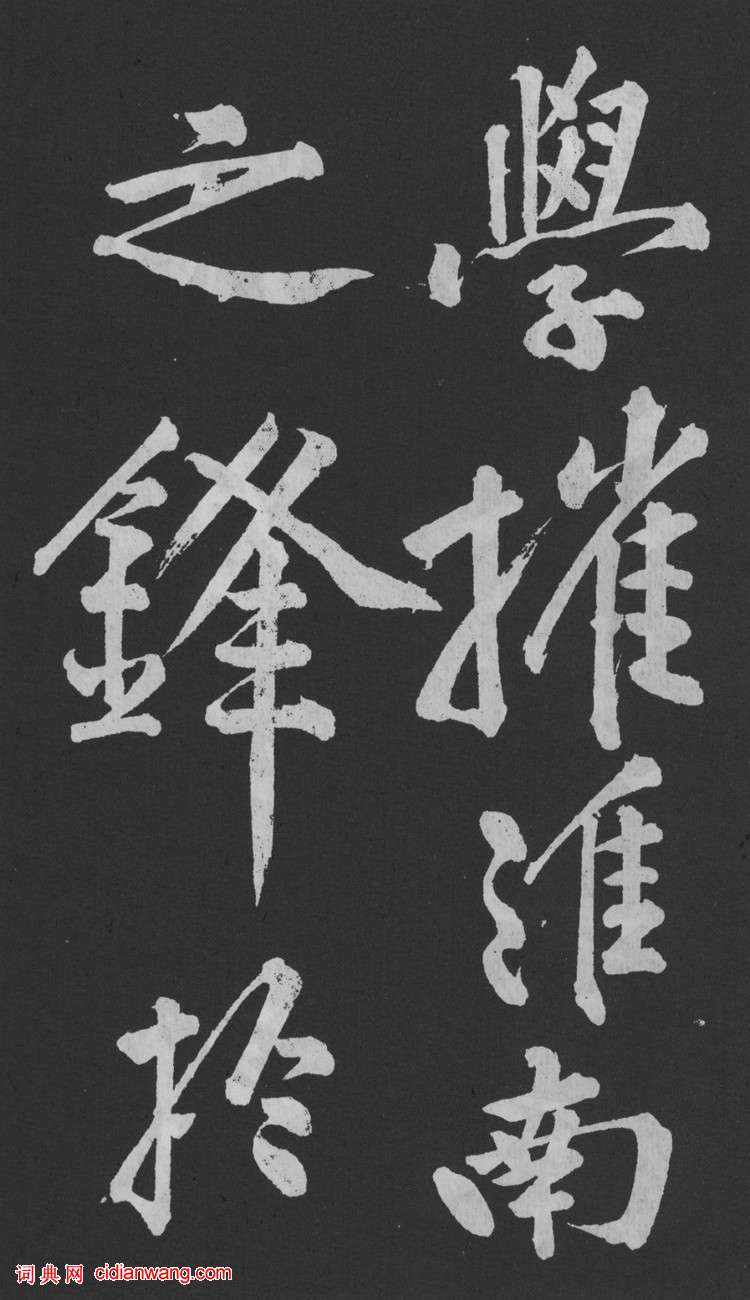 學摧淮南
之鋒於
词典网 cidianwang.com